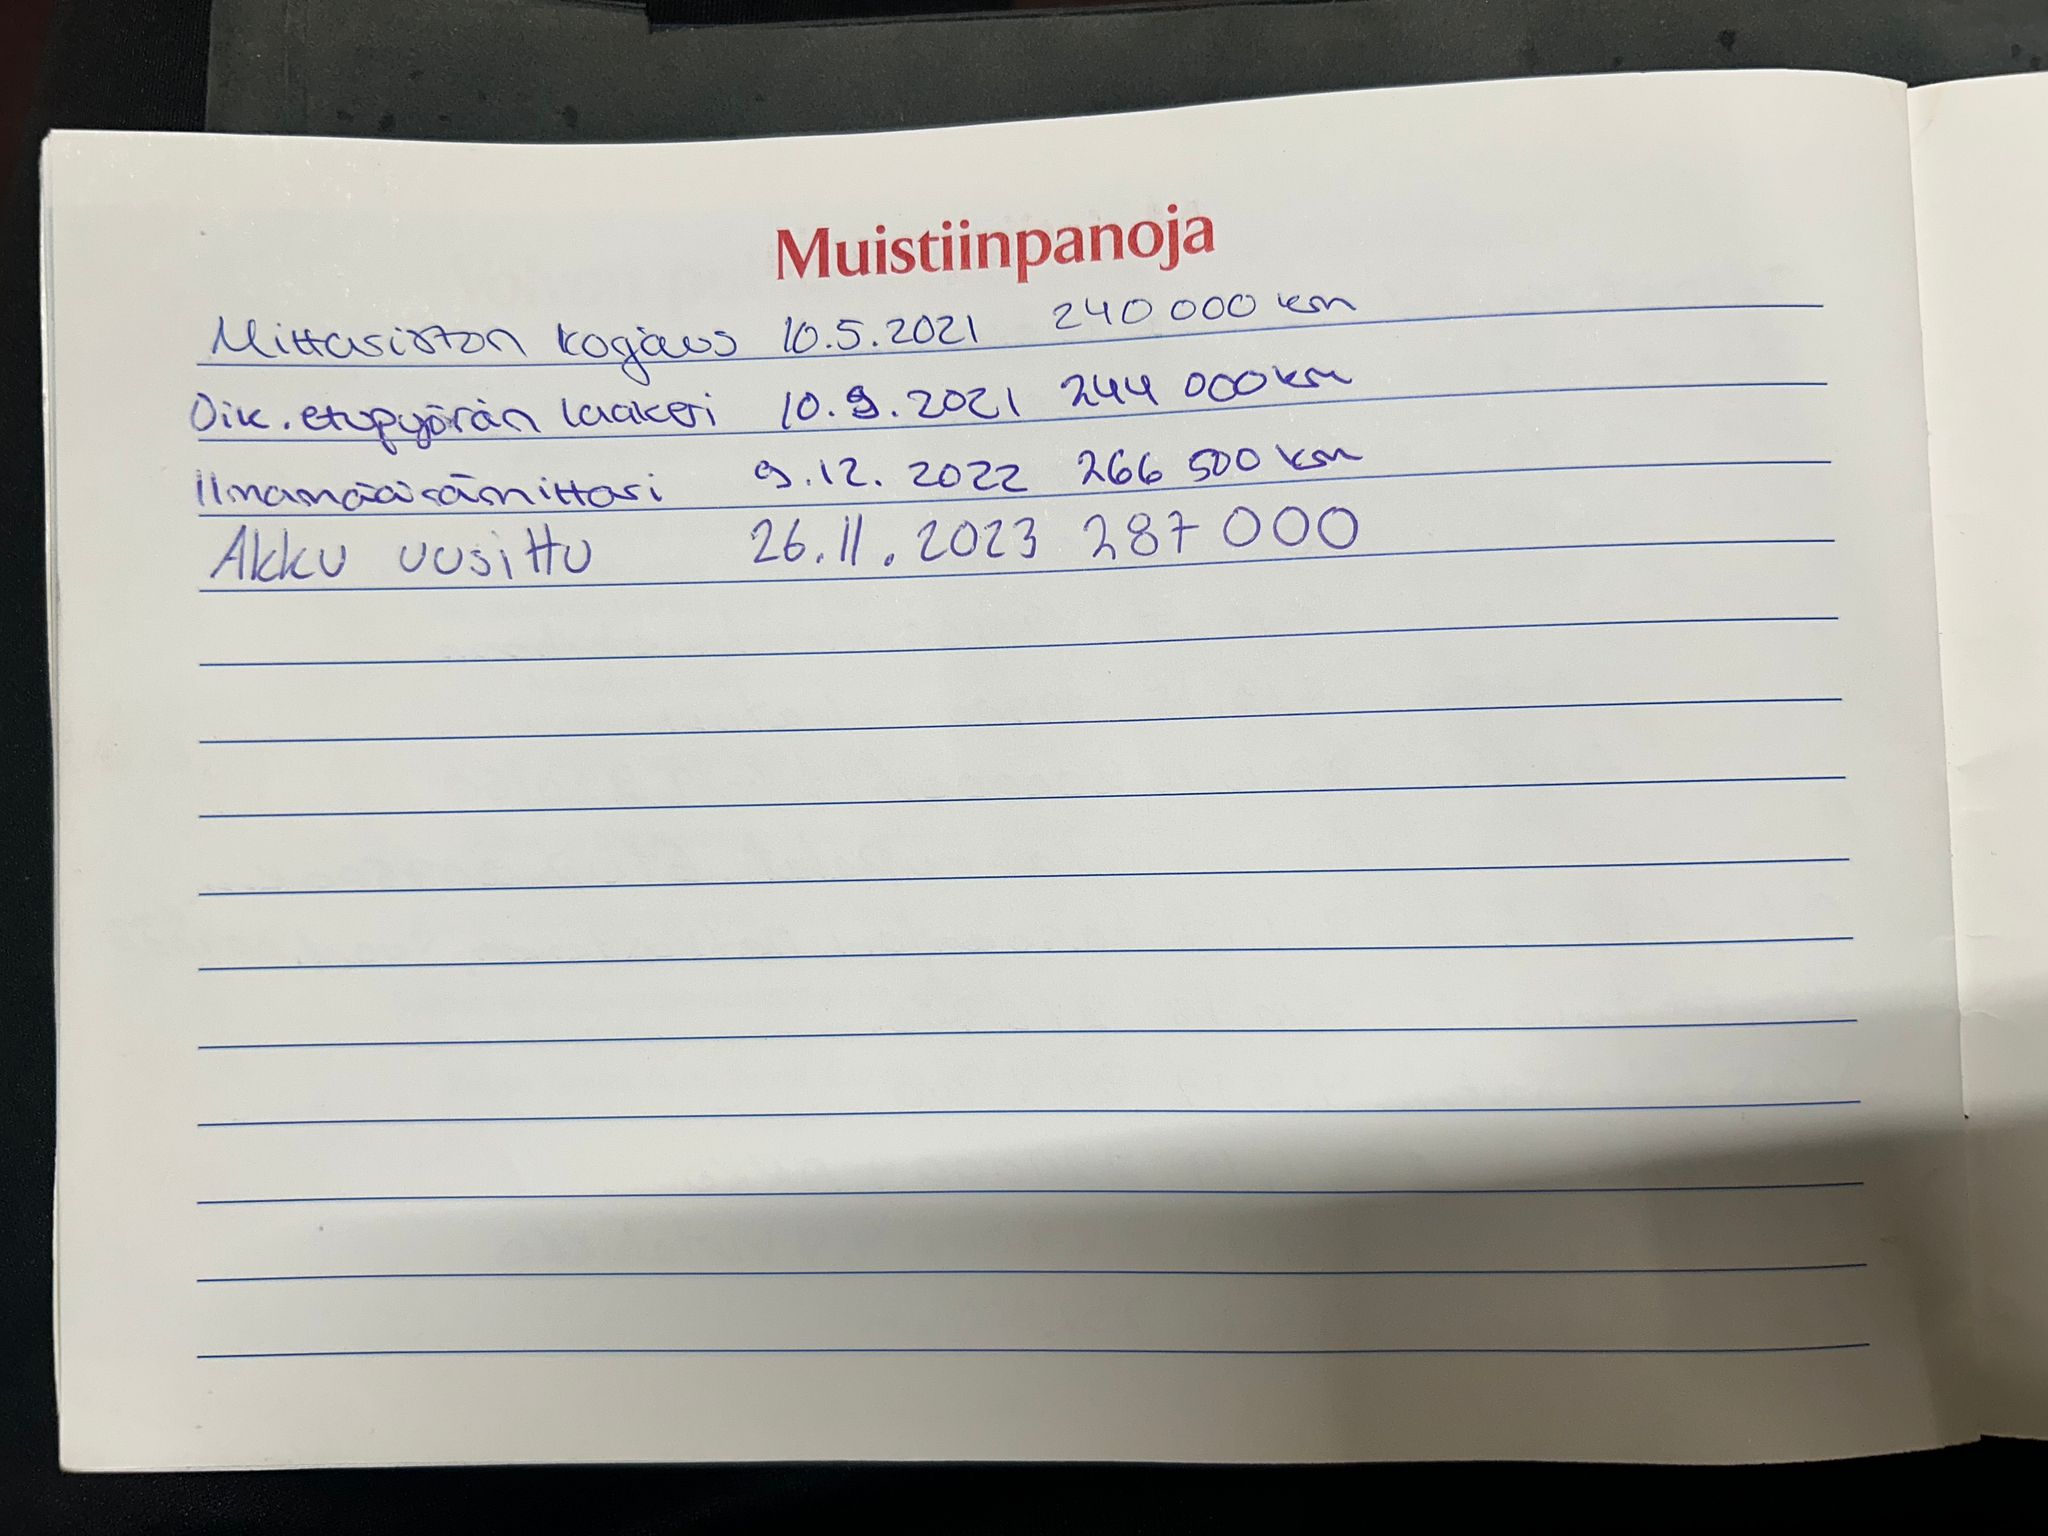 Muistiinpanoja
Mittasiston korjaus 10.5.2021 240 000 km
Oik. etupyörän laakeri 10.9.2021 244 000 km
Ilmamäärämittari 9.12.2022 266 500 km
Akku uusittu 26.11.2023 287 000